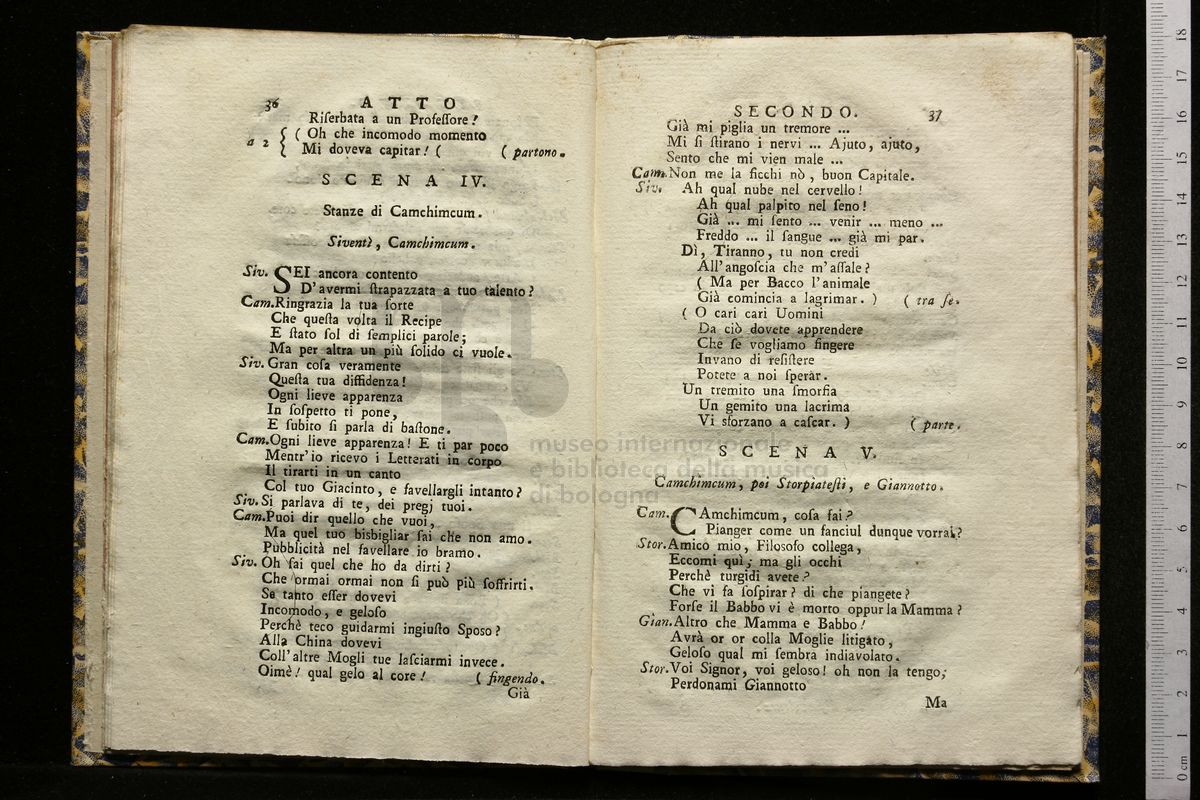 36 ATTO
Riſerbata a un Profeſſore?
a 2 { ( Oh che incomodo momento
Mi doveva capitar! ( ( partono.
SCENA IV.
Stanze di Camchimcum.
Siventì, Camchimcum.
Siv. SEI ancora contento
D'avermi ſtrapazzata a tuo talento?
Cam. Ringrazia la tua ſorte
Che queſta volta il Recipe
E ſtato ſol di ſemplici parole;
Ma per altra un più ſolido ci vuole.
Siv. Gran coſa veramente
Queſta tua diffidenza!
Ogni lieve apparenza
In ſoſpetto ti pone,
E ſubito ſi parla di baſtone.
Cam. Ogni lieve apparenza! E ti par poco
Mentr'io ricevo i Letterati in corpo
Il tirarti in un canto
Col tuo Giacinto, e favellargli intanto?
Siv. Si parlava di te, dei pregj tuoi.
Cam. Puoi dir quello che vuoi,
Ma quel tuo bisbigliar ſai che non amo.
Pubblicità nel favellare io bramo.
Siv. Oh ſai quel che ho da dirti?
Che ormai ormai non ſi può più ſoffrirti.
Se tanto eſſer dovevi
Incomodo, e geloſo
Perchè teco guidarmi ingiuſto Sposo?
Alla China dovevi
Coll'altre Mogli tue laſciarmi invece.
Oimè! qual gelo al core! ( fingendo.
Già
SECONDO. 37
Già mi piglia un tremore ...
Mi ſi ſtirano i nervi ... Ajuto, ajuto,
Sento che mi vien male ...
Cam. Non me la ficchi nò, buon Capitale.
Siv. Ah qual nube nel cervello!
Ah qual palpito nel ſeno!
Già ... mi ſento ... venir ... meno ...
Freddo ... il ſangue ... già mi par.
Dì, Tiranno, tu non credi
All'angoſcia che m'aſſale?
( Ma per Bacco l'animale
Già comincia a lagrimar. ) ( tra ſe.
( O cari cari Uomini
Da ciò dovete apprendere
Che ſe vogliamo fingere
Invano di reſiſtere
Potete a noi ſperàr.
Un tremito una ſmorfia
Un gemito una lacrima
Vi sforzano a caſcar. ) ( parte.
SCENA V.
Camchimcum, poi Storpiateſti, e Giannotto.
Cam. CAmchimcum, coſa fai?
Pianger come un fanciul dunque vorrai?
Stor. Amico mio, Filoſofo collega,
Eccomi quì; ma gli occhi
Perchè turgidi avete?
Che vi fa ſoſpirar? di che piangete?
Forſe il Babbo vi è morto oppur la Mamma?
Gian. Altro che Mamma e Babbo!
Avrà or or colla Moglie litigato,
Geloſo qual mi ſembra indiavolato.
Stor. Voi Signor, voi geloso! oh non la tengo;
Perdonami Giannotto
Ma
museo internazionale
e biblioteca della musica
di bologna
0 cm 1 2 3 4 5 6 7 8 9 10 11 12 13 14 15 16 17 18